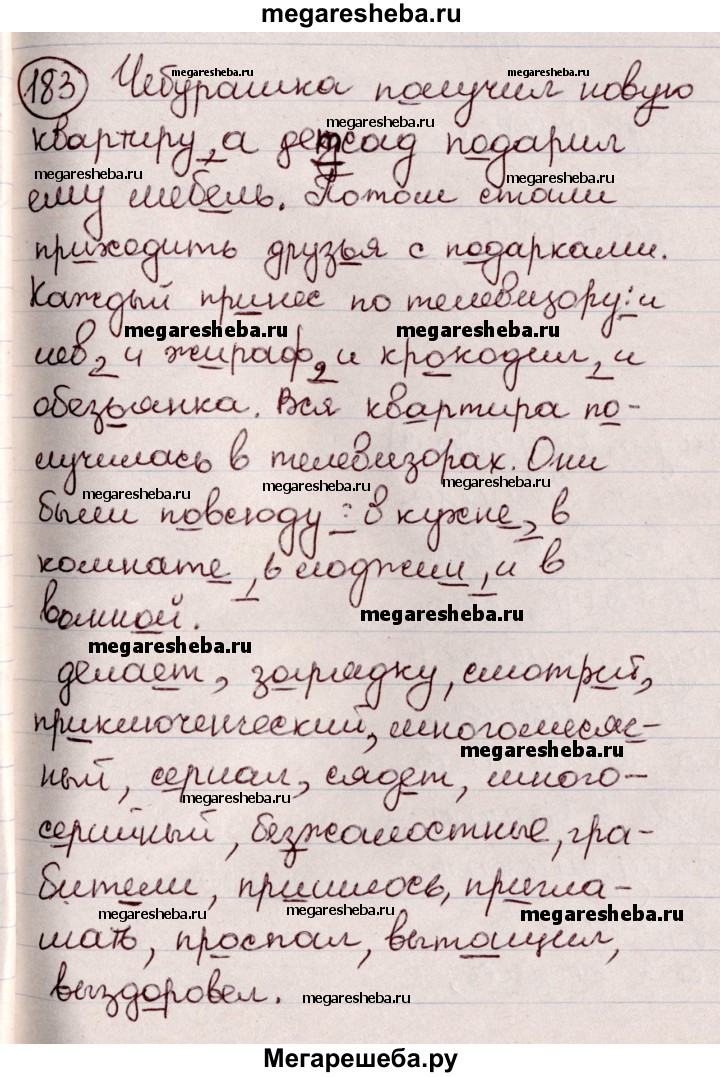 megaresheba.ru
183 Чебурашка получил новую
megaresheba.ru
megaresheba.ru
megaresheba.ru
квартиру, а детсад подарил
megaresheba.ru
megaresheba.ru
ему мебель. Потом стали
приходить друзья с подарками.
megaresheba.ru
megaresheba.ru
Каждый принес по телевизору: и
megaresheba.ru
megaresheba.ru
лев, и жираф, и крокодил, и
обезьянка. Вся квартира по-
лучилась в телевизорах. Они
megaresheba.ru
megaresheba.ru
megaresheba.ru
были повсюду: в кухне, в
комнате, в лоджии, и в
ванной.
megaresheba.ru
megaresheba.ru
делает, зарядку, смотрит,
приключенческий, многомеся-
megaresheba.ru
ный, сериал, сядет, много-
megaresheba.ru
серийный, безжалостные, гра-
бители, пришлось, пригла-
megaresheba.ru
megaresheba.ru
megaresheba.ru
шать, проспал, вытащил,
выздоровел.
megaresheba.ru
Мегарешеба.ру